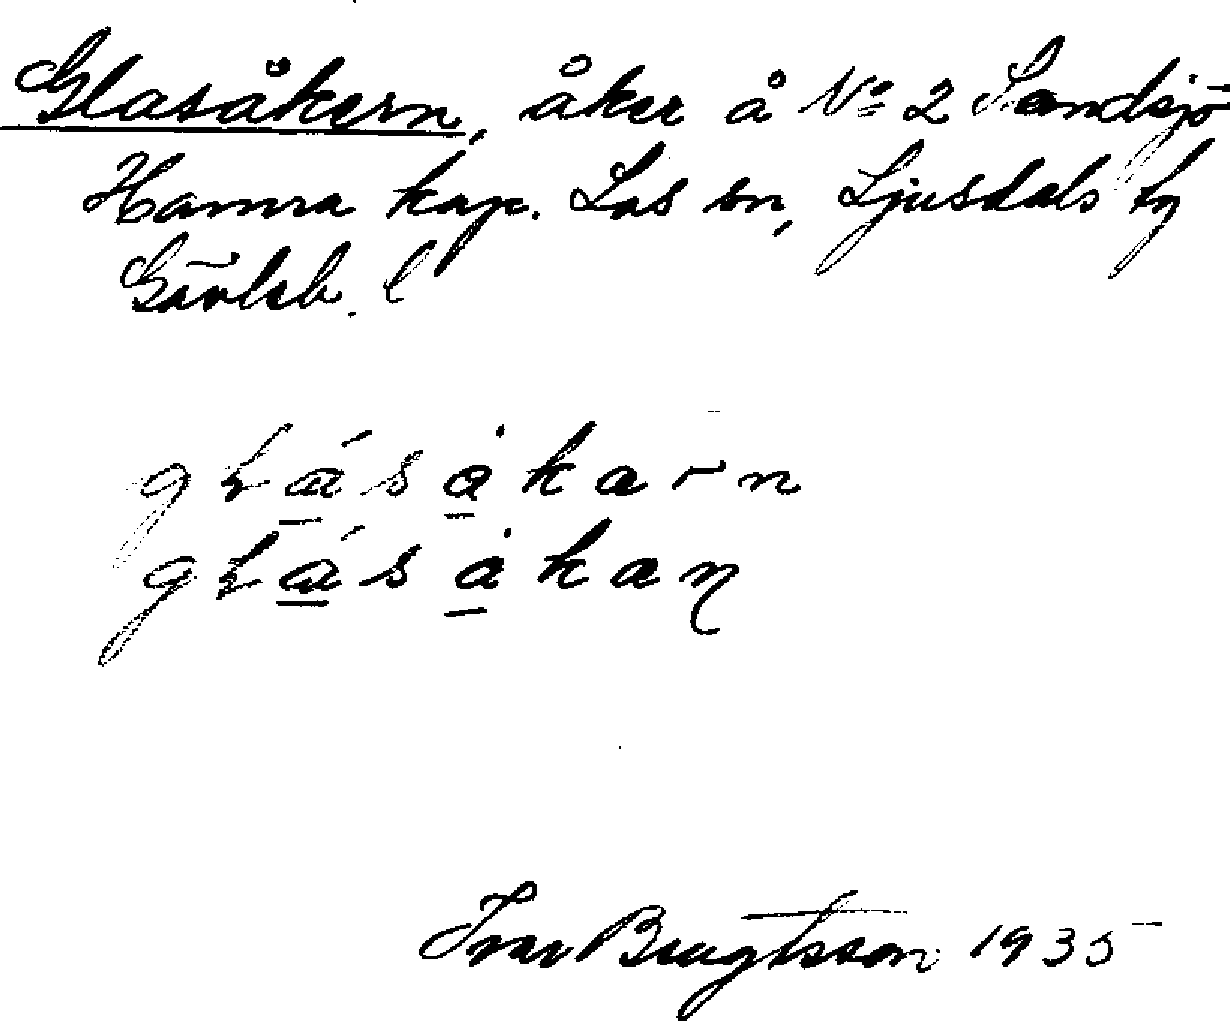 Glasåkern, åker å No 2 Sandsjö
Hamra kap. Los sn, Ljusdals tg
Gävleb. l
glásåkarn
glásåkaɳ
Ivar Bengtsson 1935